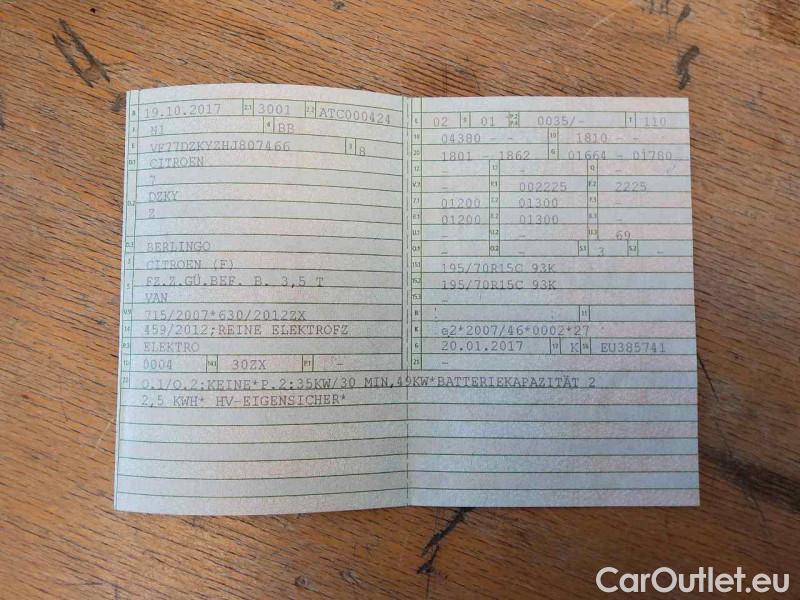 B 19.10.2017 2.1 3001 2.2 ATC000424
J N1 4 BB
E VF77DZKYZHJ807466 3 8
D.1 CITROEN
7
D.2 DZKY
Z
D.3 BERLINGO
2 CITROEN (F)
5 FZ.Z.GÜ.BEF. B. 3,5 T
VAN
V.9 715/2007*630/2012ZX
14 459/2012;REINE ELEKTROFZ
P.3 ELEKTRO
10 0004 14.1 30ZX P.1 -
22 O.1/O.2:KEINE*P.2:35KW/30 MIN,49KW*BATTERIEKAPAZITÄT 2
2,5 KWH* HV-EIGENSICHER*
L 02 9 01 P.2 P.4 0035/- T 110
18 04380 - - 19 1810 - -
20 1801 - 1862 G 01664 - 01780
12 - 13 - Q -
V.7 - F.1 002225 F.2 2225
7.1 01200 7.2 01300 7.3 -
8.1 01200 8.2 01300 8.3 -
U.1 - U.2 - U.3 69
O.1 - O.2 - S.1 3 S.2 -
15.1 195/70R15C 93K
15.2 195/70R15C 93K
15.3 -
R - 11
K e2*2007/46*0002*27
6 20.01.2017 17 K 16 EU385741
21 -
CarOutlet.eu